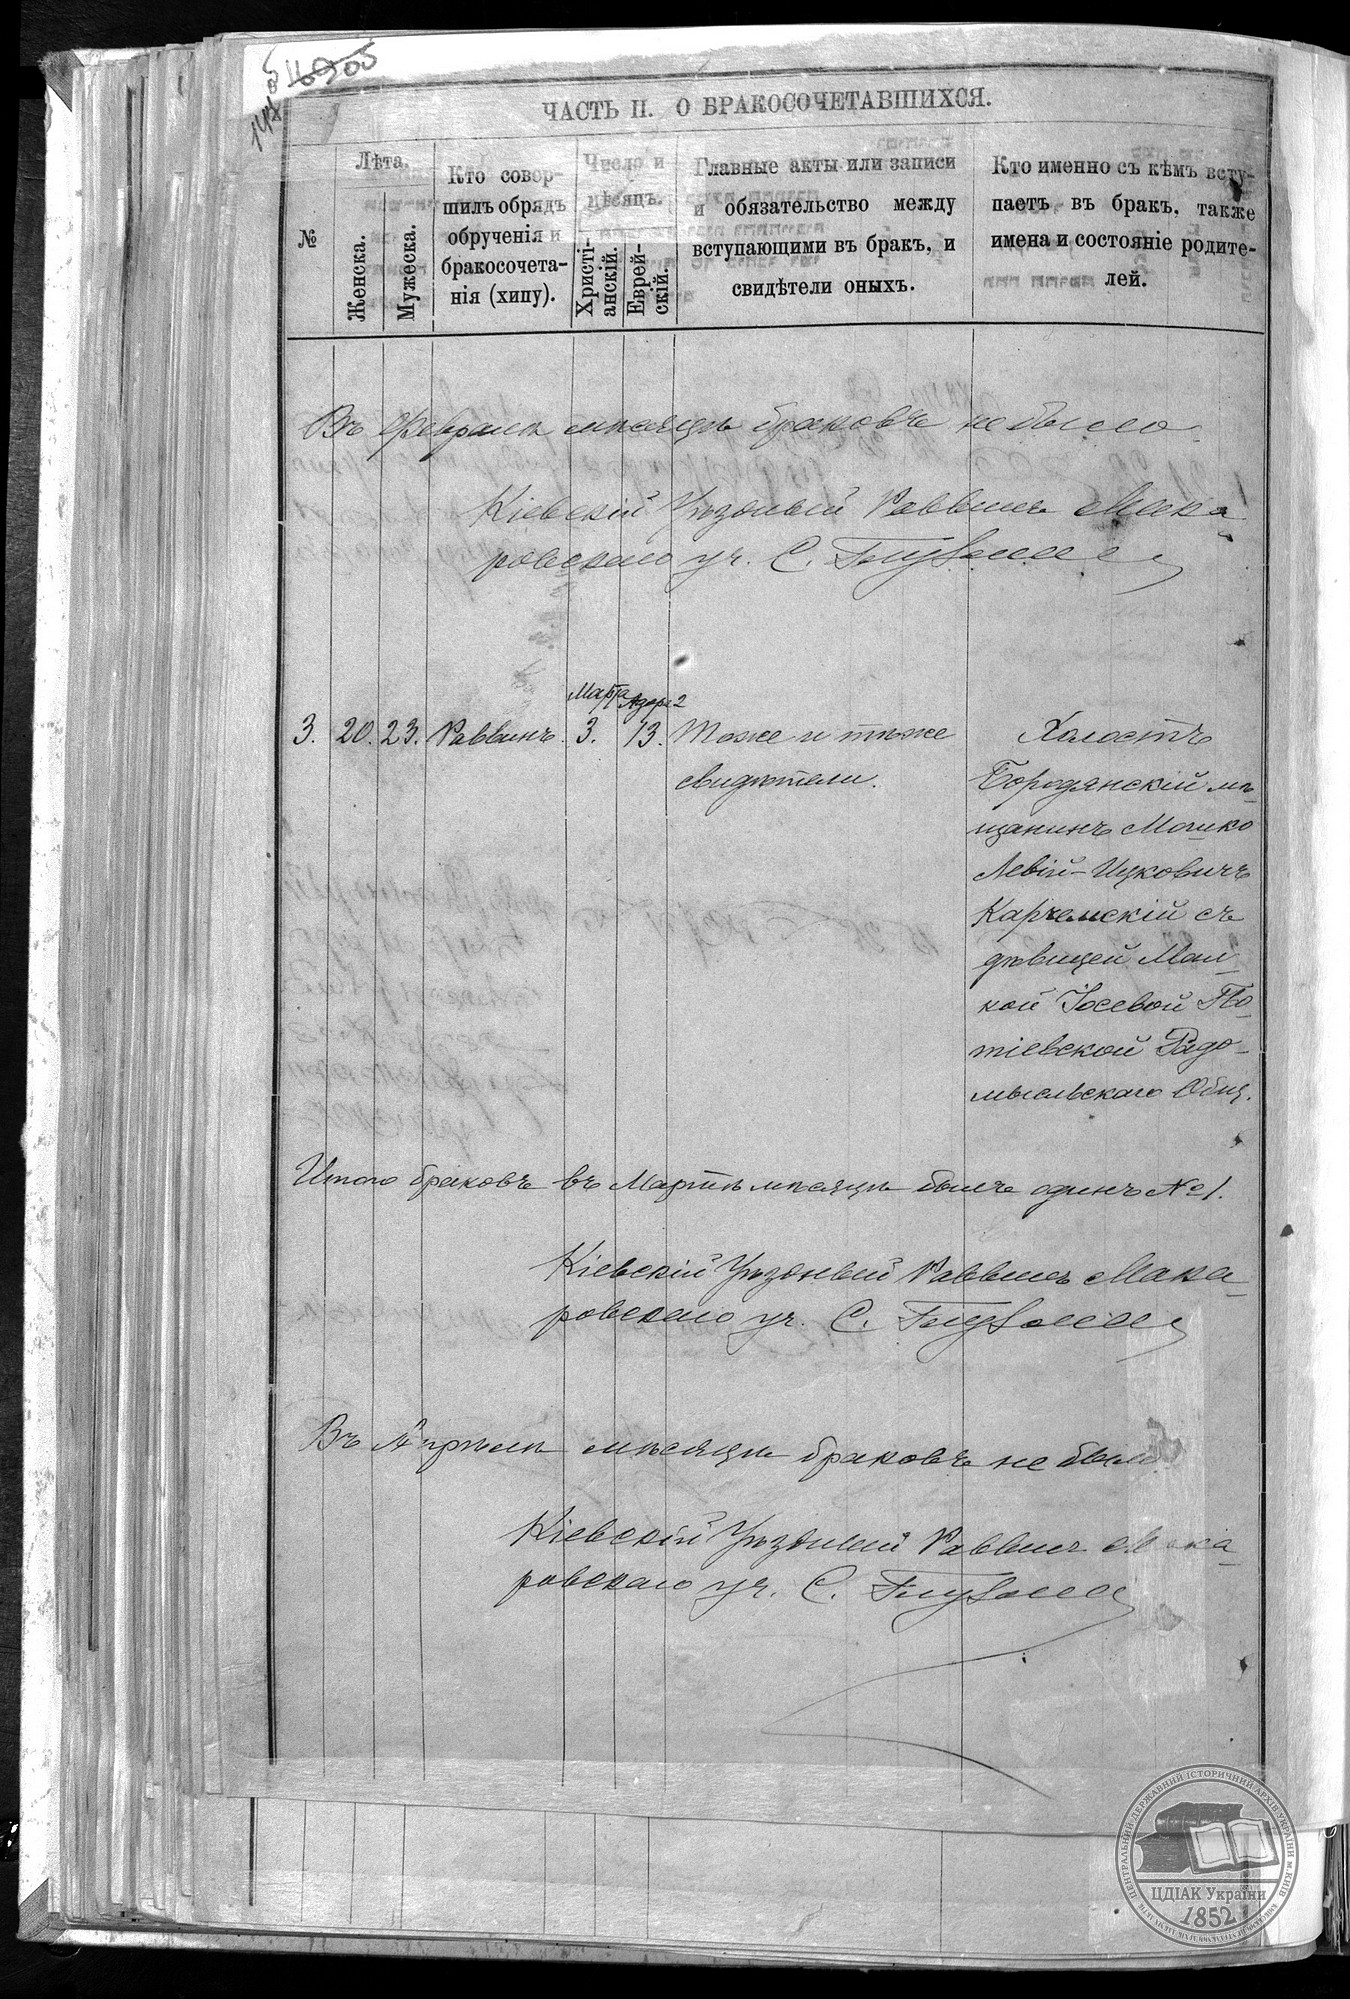 ЧАСТЬ II. О БРАКОСОЧЕТАВШИХСЯ.
№
Лѣта.
Женска.
Мужеска.
Кто совер-
шилъ обрядъ
обрученія и
бракосочета-
нія (хипу).
Число и
мѣсяцъ.
Христі-
анскій.
Еврей-
скій.
Главные акты или записи
и обязательство между
вступающими въ бракъ, и
свидѣтели оныхъ.
Кто именно съ кѣмъ всту-
паетъ въ бракъ, также
имена и состояніе родите-
лей.
Въ Февралѣ мѣсяцѣ браковъ не было.
Кіевскій Уѣздный Раввинъ Мака-
ровскаго уч. С.
Марта Адора 2
3. 20. 23. Раввинъ. 3. 13. Тоже и тѣже
свидѣтели.
Холостъ
Бородянскій мѣ-
щанинъ Мошко
Левій-Ицковичъ
Карчемскій съ
дѣвицей Мал-
кой Іосевой По-
тіевской Радо-
мысльскаго Общ.
Итого браковъ въ Мартѣ мѣсяцѣ былъ одинъ №1.
Кіевскій Уѣздный Раввинъ Мака-
ровскаго уч. С.
Въ Апрѣлѣ мѣсяцѣ браковъ не было
Кіевскій Уѣздный Раввинъ Мака-
ровскаго уч. С.
ЦЕНТРАЛЬНИЙ ДЕРЖАВНИЙ ІСТОРИЧНИЙ АРХІВ УКРАЇНИ м. КИЇВ
ЦДІАК України
1852